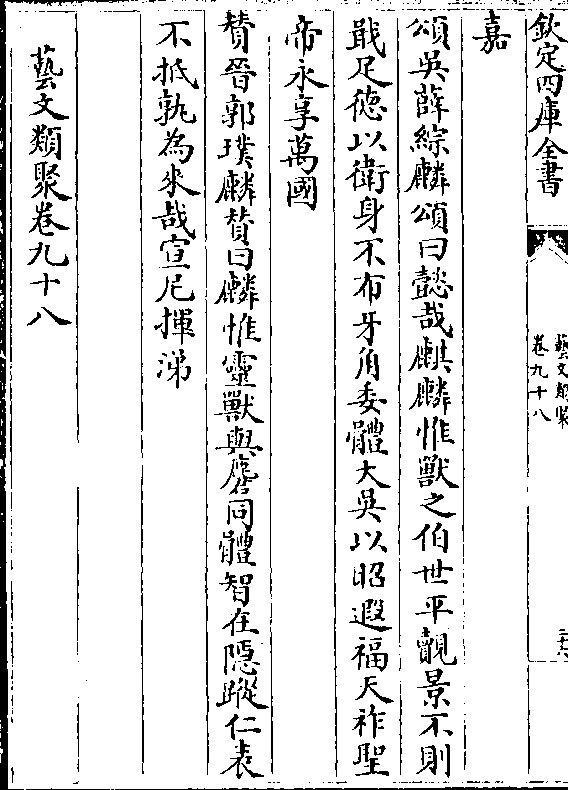 欽定四庫全書
藝文類聚
卷九十八
三十六
嘉
頌吳薛綜麟頌曰懿哉麒麟惟獸之伯世平覿景不則
戢足德以衛身不布牙角委體大吳以昭遐福天祚聖
帝永享萬國
賛晉郭璞麟賛曰麟惟靈獸與麐同體智在隱蹤仁表
不抵孰為來哉宣尼揮涕
藝文類聚卷九十八